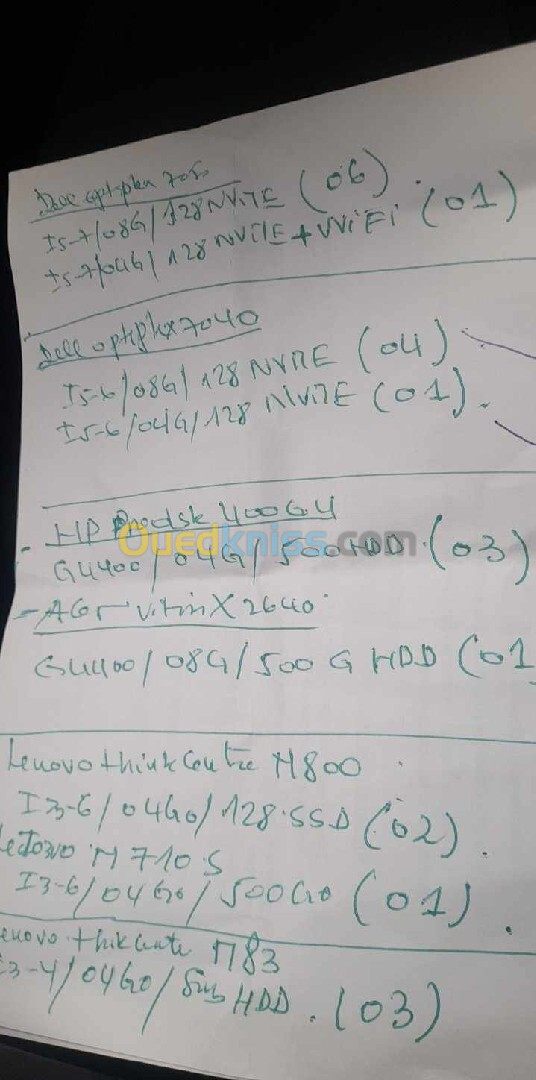 Dell optiplex 7050
I5-7/08G/128 NVME (06)
I5-7/04G/128 NVME + WiFi (01)
Dell optiplex 7040
I5-6/08G/128 NVME (04)
I5-6/04G/128 NVME (01).
- HP 400 G4
Ouedkniss.com
G4400/04G/500 HDD (03)
- X2640
G4400/08G/500 G HDD (01
Lenovo think Centre M800
I3-6/04Go/128.SSD (02).
M710S
I3-6/04Go/500Go (01).
enovo thikcente M83
I3-4/04Go/ HDD. (03)